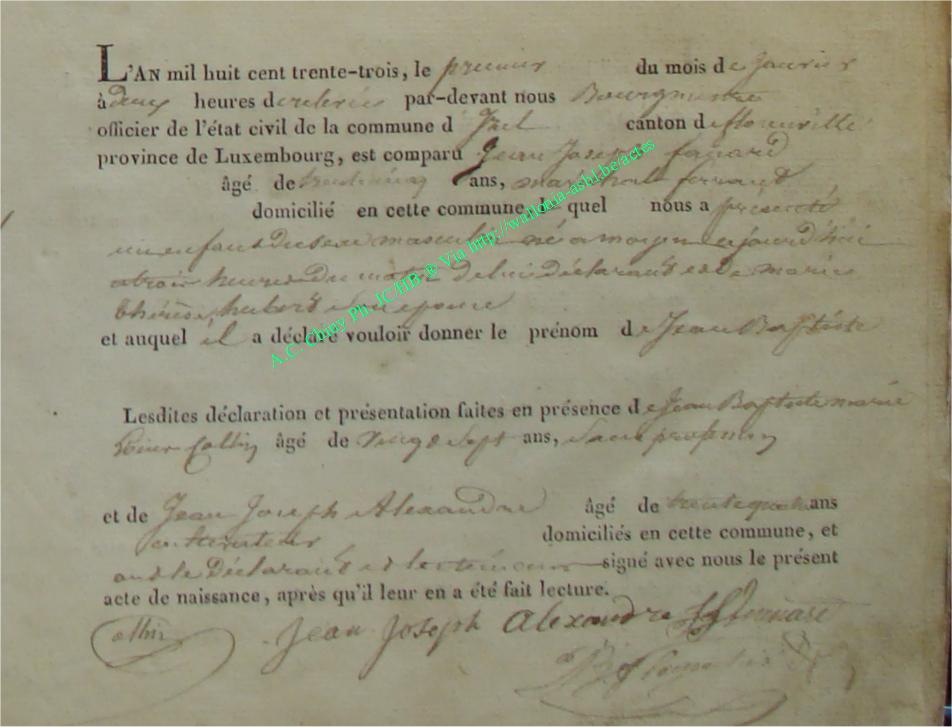 L'AN mil huit cent trente-trois, le premier du mois de janvier
à deux heures de relevée par-devant nous Bourgmestre
officier de l'état civil de la commune d' Izel canton de florenville
province de Luxembourg, est comparu Jean Joseph
âgé de trente cinq ans, maréchal ferrant
domicilié en cette commune le quel nous a présenté
un enfant du sexe masculin né a ce jourd'hui
a trois heures du matin de lui déclarant et de marie
thérèse hubert son épouse
et auquel il a déclaré vouloir donner le prénom de Jean Baptiste
Lesdites déclaration et présentation faites en présence de Jean Baptiste marie
Collin âgé de Vingt Sept ans, sans profession
et de Jean Joseph Alexandre âgé de trente quatre ans
domiciliés en cette commune, et
ont le Déclarant et les témoins signé avec nous le présent
acte de naissance, après qu'il leur en a été fait lecture.
Jean Joseph Alexandre
A.C. Chiny Ph JC/HB ® Via http://wallonia-asbl.be/actes